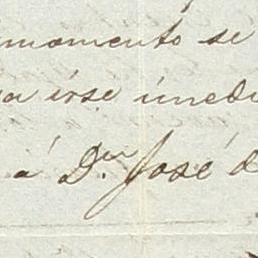 momento se
a irse inedi
á Dn. José d